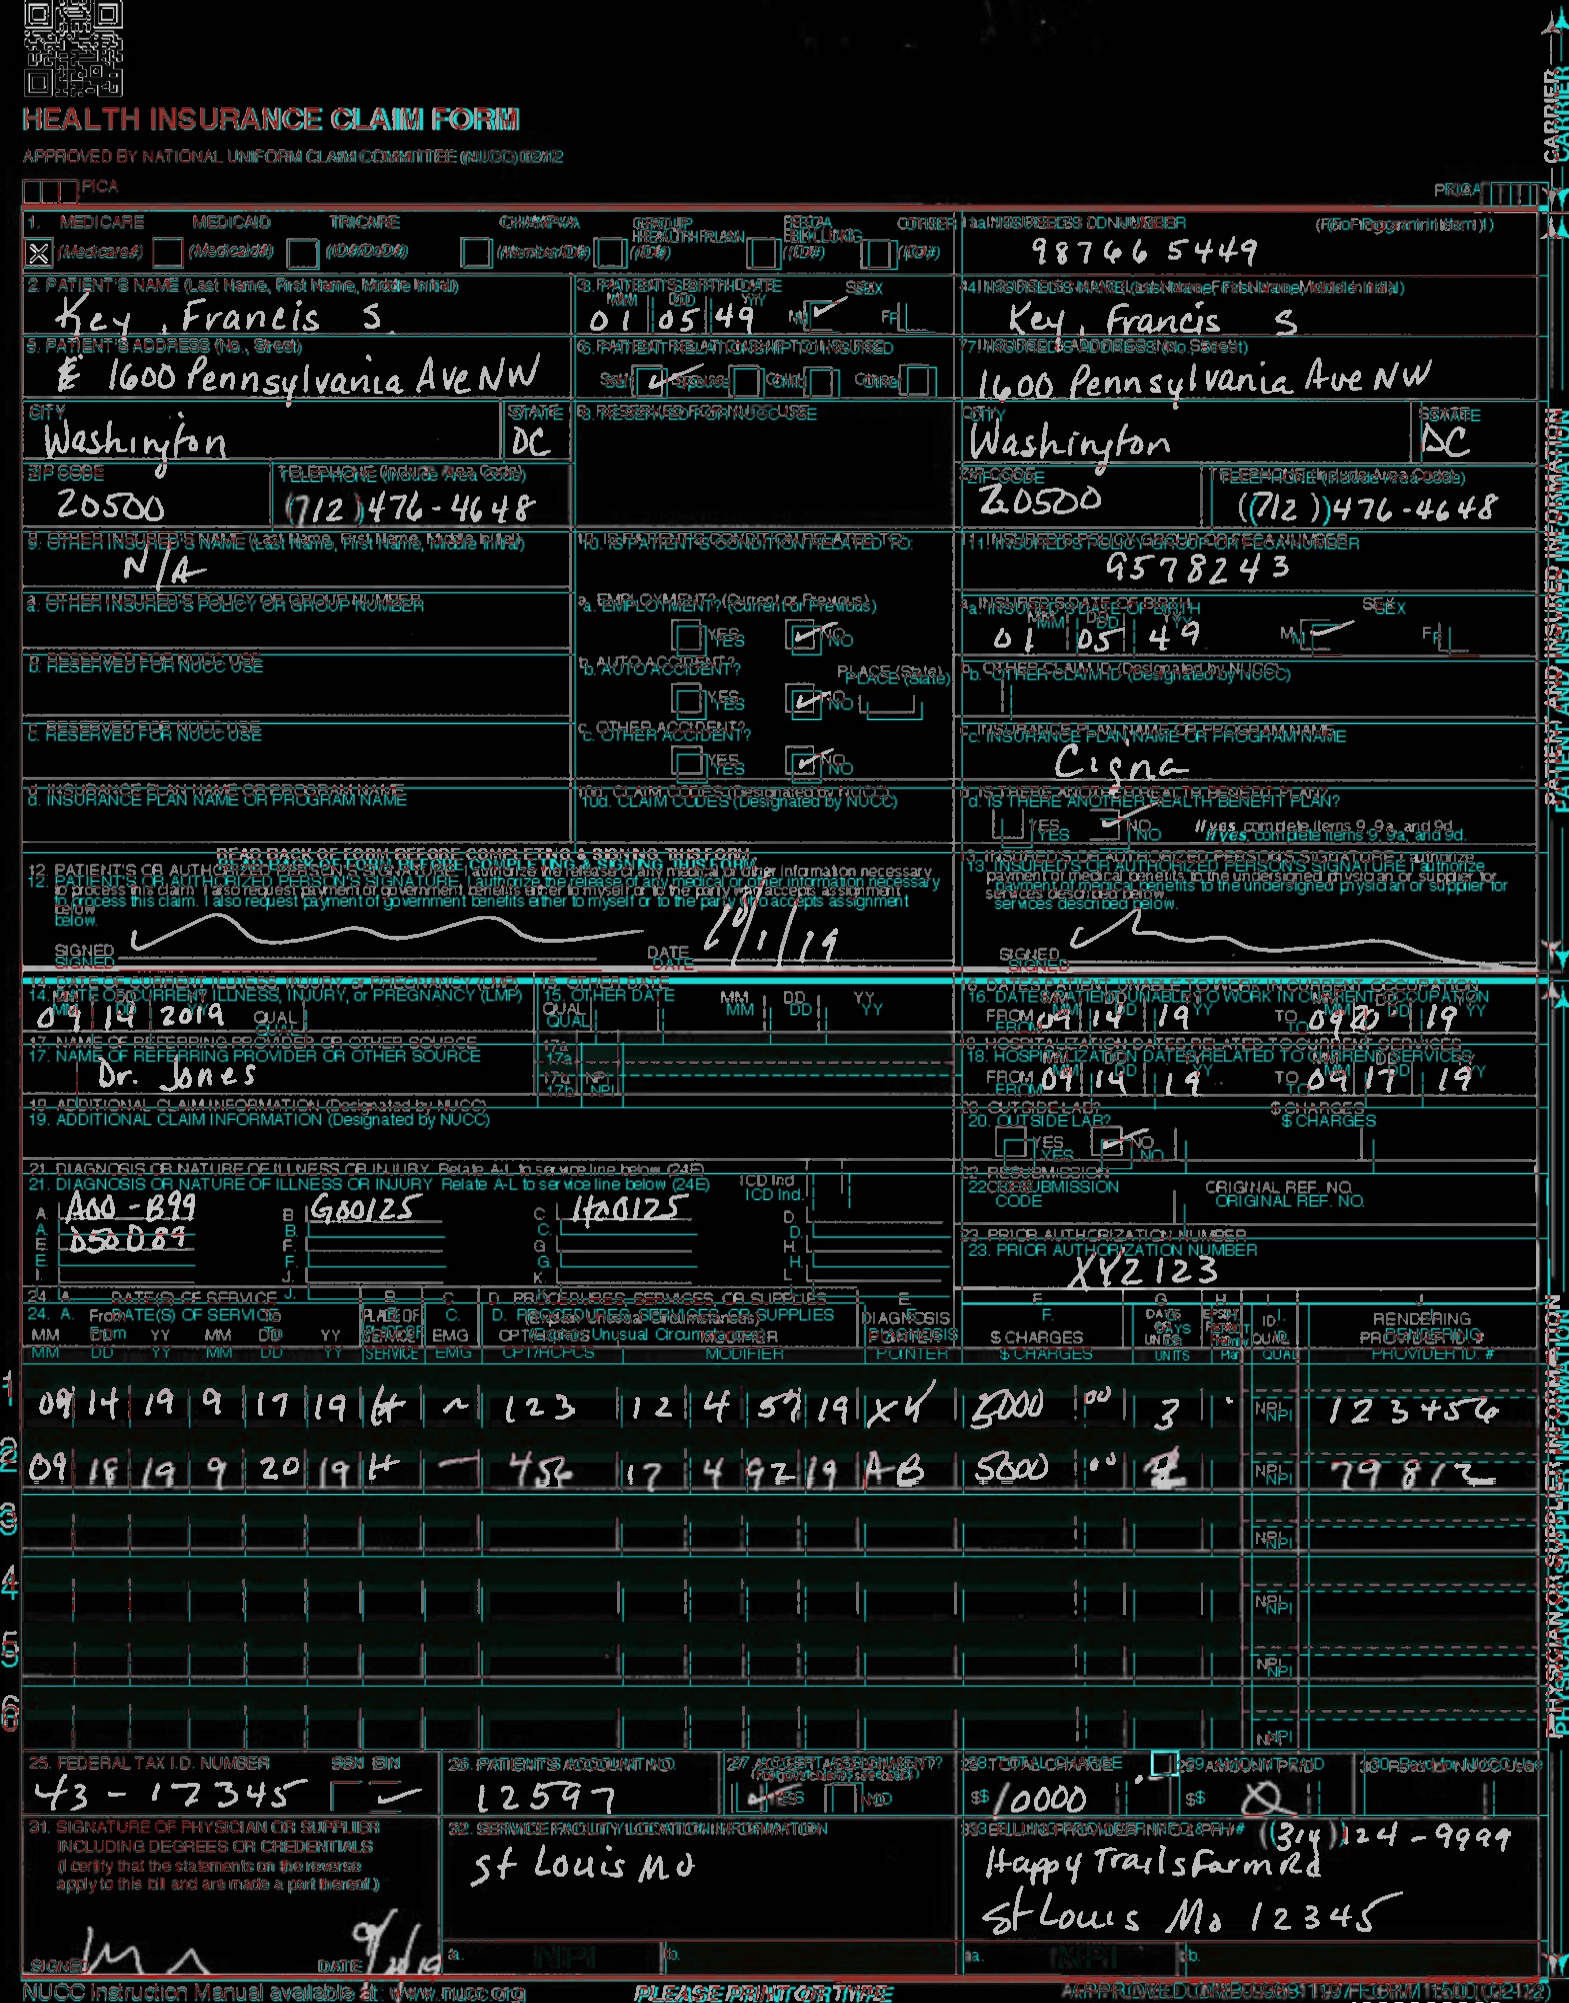 HEALTH INSURANCE CLAIM FORM
APPROVED BY NATIONAL UNIFORM CLAIM COMMITTEE (NUCC) 02/12
PICA
PICA
CARRIER
1. MEDICARE MEDICAID TRICARE CHAMPVA GROUP HEALTH PLAN FECA BLK LUNG OTHER
(Medicare#) (Medicaid#) (ID#/DoD#) (Member ID#) (ID#) (ID#) (ID#)
1a. INSURED'S I.D. NUMBER (For Program in Item 1)
98766 5449
2. PATIENT'S NAME (Last Name, First Name, Middle Initial)
Key, Francis S.
3. PATIENT'S BIRTH DATE SEX
MM DD YY
01 05 49 M F
4. INSURED'S NAME (Last Name, First Name, Middle Initial)
Key, Francis S
5. PATIENT'S ADDRESS (No., Street)
1600 Pennsylvania Ave NW
6. PATIENT RELATIONSHIP TO INSURED
Self Spouse Child Other
7. INSURED'S ADDRESS (No., Street)
1600 Pennsylvania Ave NW
CITY STATE
Washington DC
8. RESERVED FOR NUCC USE
CITY STATE
Washington DC
ZIP CODE TELEPHONE (Include Area Code)
20500 (712) 476-4648
ZIP CODE TELEPHONE (Include Area Code)
20500 (712) 476-4648
9. OTHER INSURED'S NAME (Last Name, First Name, Middle Initial)
N/A
10. IS PATIENT'S CONDITION RELATED TO:
11. INSURED'S POLICY GROUP OR FECA NUMBER
9578243
a. OTHER INSURED'S POLICY OR GROUP NUMBER
a. EMPLOYMENT? (Current or Previous)
YES NO
a. INSURED'S DATE OF BIRTH SEX
MM DD YY
01 05 49 M F
b. RESERVED FOR NUCC USE
b. AUTO ACCIDENT? PLACE (State)
YES NO
b. OTHER CLAIM ID (Designated by NUCC)
c. RESERVED FOR NUCC USE
c. OTHER ACCIDENT?
YES NO
c. INSURANCE PLAN NAME OR PROGRAM NAME
Cigna
d. INSURANCE PLAN NAME OR PROGRAM NAME
10d. CLAIM CODES (Designated by NUCC)
d. IS THERE ANOTHER HEALTH BENEFIT PLAN?
YES NO If yes, complete items 9, 9a, and 9d.
READ BACK OF FORM BEFORE COMPLETING & SIGNING THIS FORM.
12. PATIENT'S OR AUTHORIZED PERSON'S SIGNATURE I authorize the release of any medical or other information necessary
to process this claim. I also request payment of government benefits either to myself or to the party who accepts assignment
below.
SIGNED DATE 10/1/19
13. INSURED'S OR AUTHORIZED PERSON'S SIGNATURE I authorize
payment of medical benefits to the undersigned physician or supplier for
services described below.
SIGNED
PATIENT AND INSURED INFORMATION
14. DATE OF CURRENT ILLNESS, INJURY, or PREGNANCY (LMP)
MM DD YY
09 14 2019 QUAL.
15. OTHER DATE MM DD YY
QUAL.
16. DATES PATIENT UNABLE TO WORK IN CURRENT OCCUPATION
MM DD YY MM DD YY
FROM 09 14 19 TO 09 20 19
17. NAME OF REFERRING PROVIDER OR OTHER SOURCE
Dr. Jones
17a.
17b. NPI
18. HOSPITALIZATION DATES RELATED TO CURRENT SERVICES
MM DD YY MM DD YY
FROM 09 14 19 TO 09 17 19
19. ADDITIONAL CLAIM INFORMATION (Designated by NUCC)
20. OUTSIDE LAB? $ CHARGES
YES NO
21. DIAGNOSIS OR NATURE OF ILLNESS OR INJURY Relate A-L to service line below (24E) ICD Ind.
A. A00-B99 B. G00125 C. H00125 D.
E. D50D89 F. G. H.
I. J. K. L.
22. RESUBMISSION CODE ORIGINAL REF. NO.
23. PRIOR AUTHORIZATION NUMBER
XYZ123
24. A. DATE(S) OF SERVICE B. C. D. PROCEDURES, SERVICES, OR SUPPLIES E. F. G. H. I. J.
From PLACE OF (Explain Unusual Circumstances) DIAGNOSIS DAYS EPSDT ID. RENDERING
MM DD YY MM DD YY SERVICE EMG CPT/HCPCS MODIFIER POINTER $ CHARGES UNITS QUAL. PROVIDER ID. #
1 09 14 19 9 17 19 H ~ 123 12 4 57 19 XY 5000 00 3 NPI 123456
2 09 18 19 9 20 19 H — 456 17 4 92 19 AB 5000 00 NPI 79812
3 NPI
4 NPI
5 NPI
6 NPI
25. FEDERAL TAX I.D. NUMBER SSN EIN
43-12345
26. PATIENT'S ACCOUNT NO.
12597
27. ACCEPT ASSIGNMENT?
YES NO
28. TOTAL CHARGE
$ 10000
29. AMOUNT PAID
$ 0
30. Rsvd for NUCC Use
31. SIGNATURE OF PHYSICIAN OR SUPPLIER
INCLUDING DEGREES OR CREDENTIALS
(I certify that the statements on the reverse
apply to this bill and are made a part thereof.)
SIGNED DATE
32. SERVICE FACILITY LOCATION INFORMATION
St Louis Mo
a. NPI b.
33. BILLING PROVIDER INFO & PH # (314) 124-9999
Happy Trails Farm Rd
St Louis Mo 12345
a. NPI b.
PHYSICIAN OR SUPPLIER INFORMATION
NUCC Instruction Manual available at: www.nucc.org
PLEASE PRINT OR TYPE
APPROVED OMB-0938-1197 FORM 1500 (02-12)